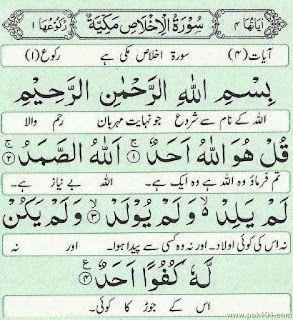 اٰيَاتُهَا ٤ سُوۡرَةُ الۡاِخۡلَاصِ مَكِّيَّةٌ رُكُوۡعُهَا ١
آیات (۴) سورۃ اخلاص مکی ہے رکوع (۱)
بِسۡمِ اللّٰهِ الرَّحۡمٰنِ الرَّحِيۡمِ
اللہ کے نام سے شروع جو نہایت مہربان رحم والا
قُلۡ هُوَ اللّٰهُ اَحَدٌ ۚ‏﴿۱﴾ اَللّٰهُ الصَّمَدُ ۚ‏﴿۲﴾
تم فرماؤ وہ اللہ ہے وہ ایک ہے۔ اللہ بے نیاز ہے۔
لَمۡ يَلِدۡ ۙ وَلَمۡ يُوۡلَدۡ ۙ‏﴿۳﴾ وَلَمۡ يَكُنۡ
نہ اس کی کوئی اولاد۔ اور نہ وہ کسی سے پیدا ہوا۔ اور نہ
لَّهٗ كُفُوًا اَحَدٌ‏﴿۴﴾
اس کے جوڑ کا کوئی۔
www.pak101.com